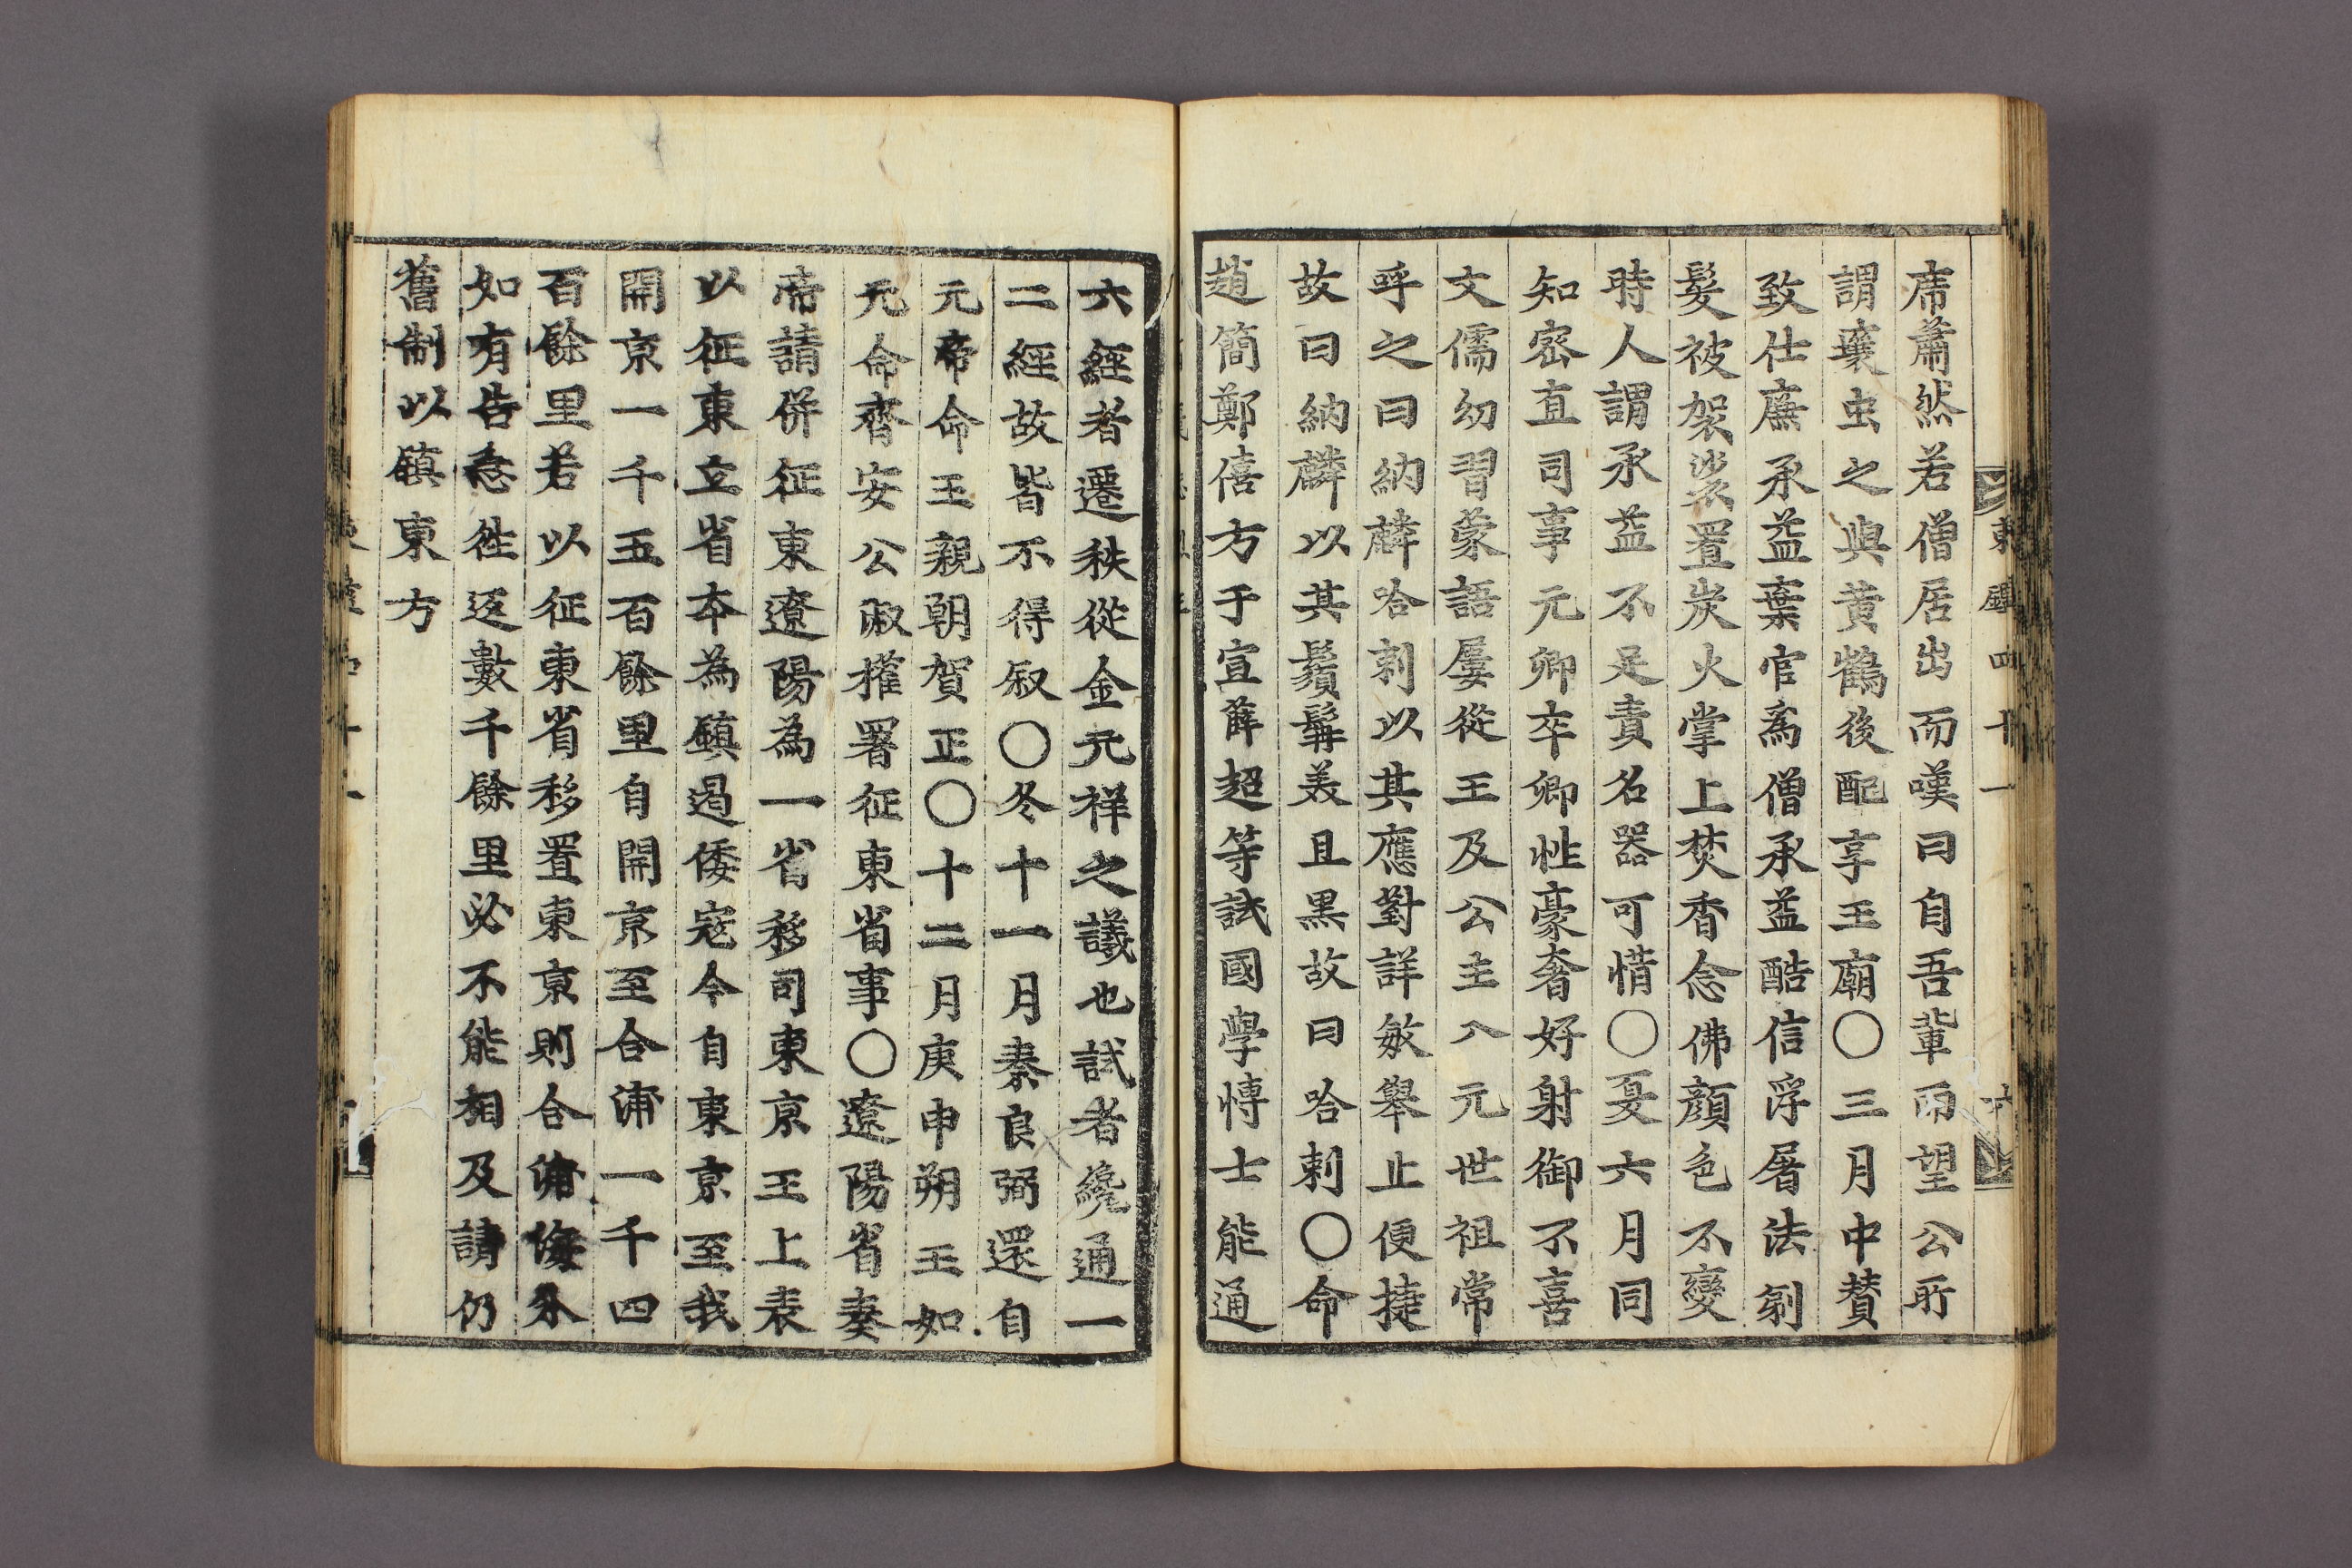 東鑑四十一
六
席蕭然若僧居出而嘆曰自吾輩而望公所
謂壤虫之與黃鶴後配享王廟〇三月中賛
致仕廉承益棄官爲僧承益酷信浮屠法剃
髮被袈裟置炭火掌上焚香念佛顔色不變
時人謂承益不足責名器可惜〇夏六月同
知密直司事元卿卒卿性豪奢好射御不喜
文儒幼習蒙語屢從王及公主入元世祖常
呼之曰納麟哈剌以其應對詳敏擧止便捷
故曰納麟以其鬚髯美且黑故曰哈剌〇命
趙簡鄭僖方于宣薛超等試國學博士能通
六經者遷秩從金元祥之議也試者纔通一
二經故皆不得叙〇冬十一月秦良弼還自
元帝命王親朝賀正〇十二月庚申朔王如
元命齊安公淑權署征東省事〇遼陽省奏
帝請併征東遼陽為一省移司東京王上表
以征東立省本為鎮遏倭寇今自東京至我
開京一千五百餘里自開京至合浦一千四
百餘里若以征東省移置東京則合浦海外
如有告急徃返數千餘里必不能相及請仍
舊制以鎮東方